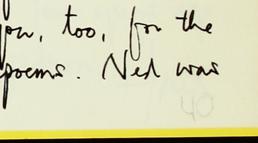 ou, too, for the
poems. Ned was
40